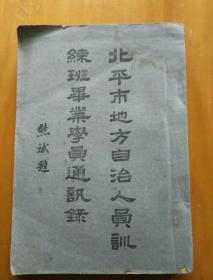 北平市地方自治人員訓
練班畢業學員通訊錄
熊斌題